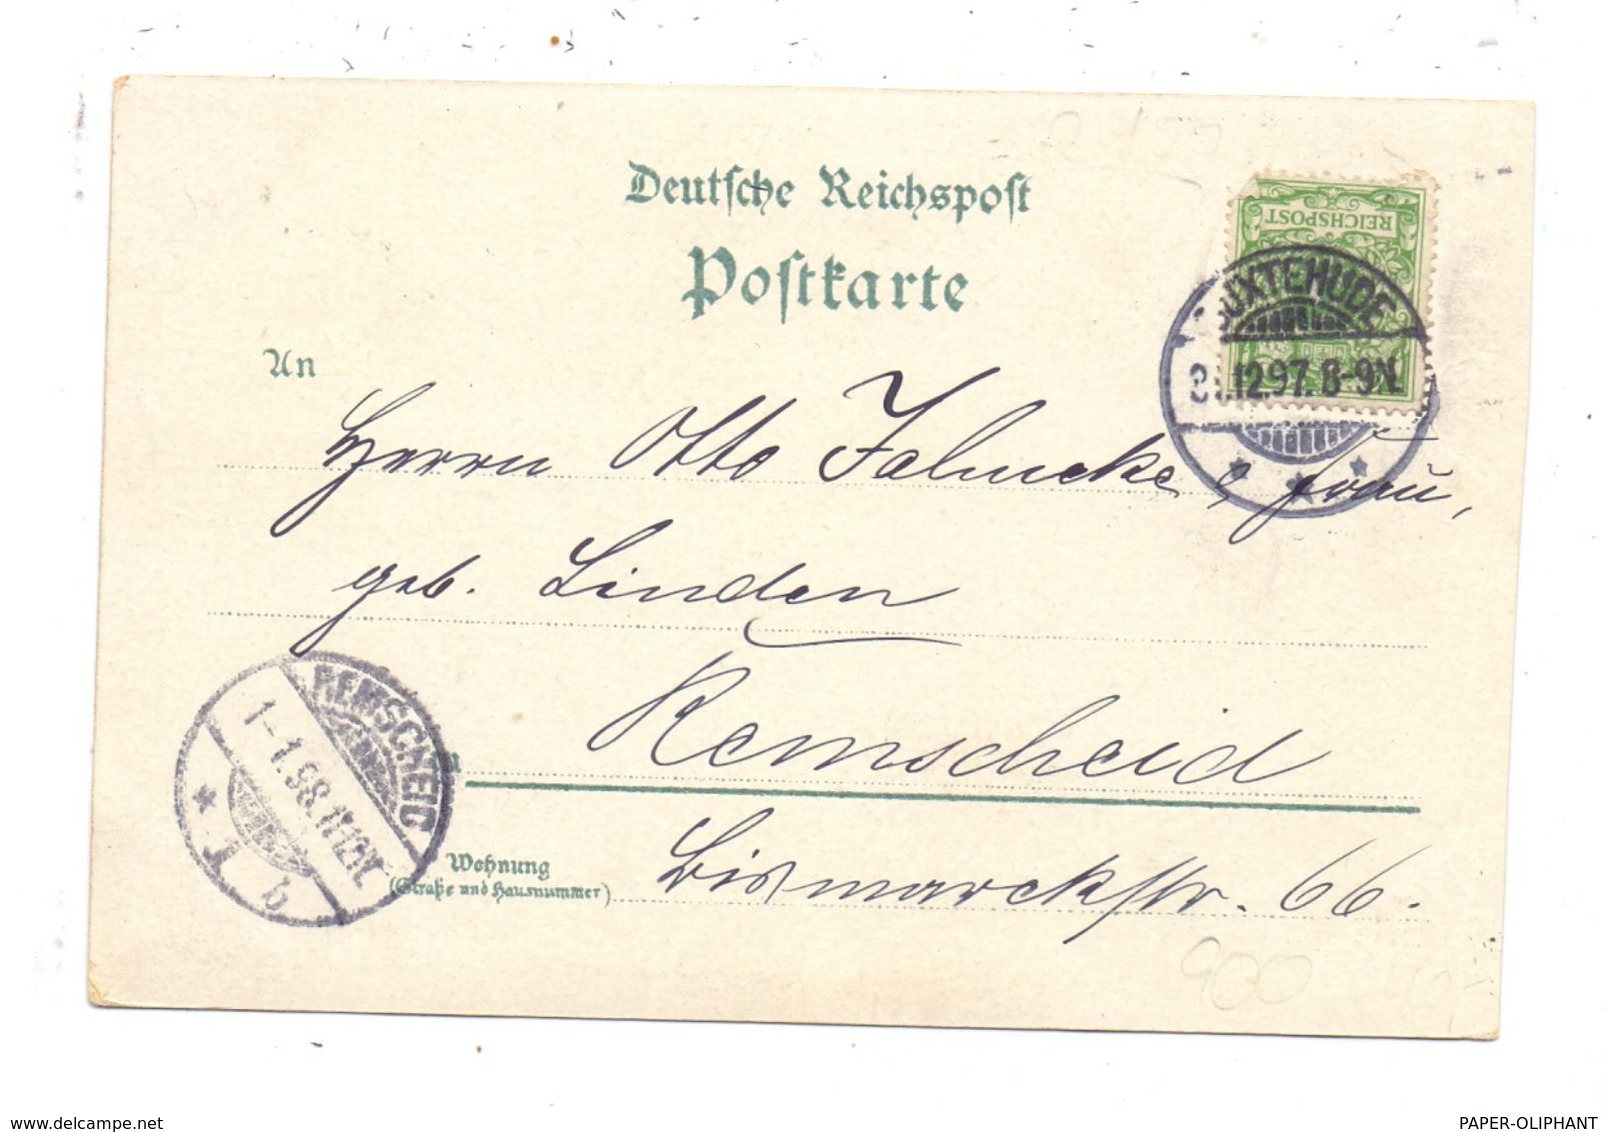 Deutsche Reichspost
Postkarte
REICHSPOST
BUXTEHUDE
31.12.97. 8-9N.
An
Herrn Otto Jalmcke, frau,
geb. Linden
Remscheid
REMSCHEID
1-1.98.11-12V.
1 b
Wohnung
(Straße und Hausnummer)
Bismarckstr. 66.
900
delcampe.net
PAPER-OLIPHANT